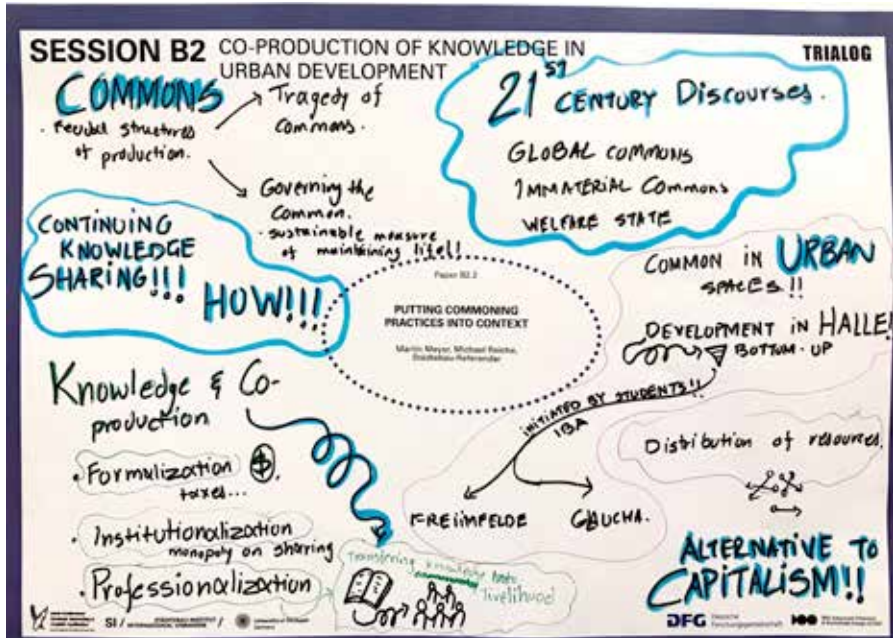 SESSION B2 CO-PRODUCTION OF KNOWLEDGE IN
URBAN DEVELOPMENT
TRIALOG
COMMONS
• feudal structures
of production.
Tragedy of
Commons.
Governing the
Common.
• sustainable measure
of maintaining life!!
21ST CENTURY DISCOURSES.
GLOBAL COMMONS
IMMATERIAL COMMONS
WELFARE STATE
CONTINUING
KNOWLEDGE
SHARING!!!
HOW!!!
Paper B2.2
PUTTING COMMONING
PRACTICES INTO CONTEXT
Martin Meyer, Michael Reiche,
Städtebau-Referendar
COMMON IN URBAN
SPACES!!
DEVELOPMENT IN HALLE!
BOTTOM-UP
INITIATED BY STUDENTS!!
IBA
FREIIMFELDE
GLAUCHA.
Distribution of resources.
ALTERNATIVE TO
CAPITALISM!!
Knowledge & Co-
production
• Formulization $.
taxes...
• Institutionalization
monopoly on sharing
• Professionalization
Transferring knowledge
livelihood
SI /
STÄDTEBAU-INSTITUT
DFG Deutsche
Forschungsgemeinschaft